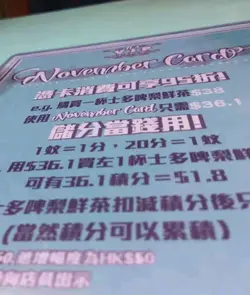 November Card?
憑卡消費可享95折!
e.g. 購買一杯士多啤梨鮮茶$38
使用November Card只需$36.1
儲分當錢用!
1蚊=1分，20分=1蚊
用$36.1買左1杯士多啤梨鮮
可有36.1積分=$1.8
士多啤梨鮮茶扣減積分後只
(當然積分可以累積)
50,遞增幅度為HK$50
員出示